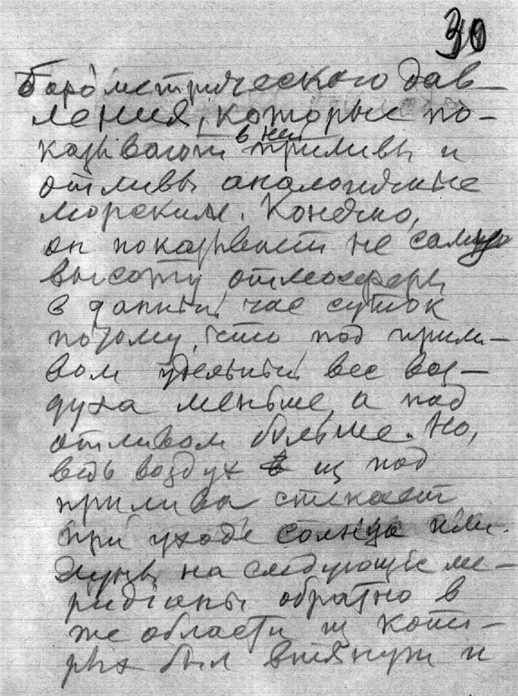 30
барометрического дав-
ления, которые по-
казывают в ней приливы и
отливы аналогичные
морским. Конечно,
он показывает не самую
высоту атмосферы
в данный час суток
потому, что под прили-
вом удельный вес воз-
духа меньше, а под
отливом больше. Но,
ведь воздух из под
прилива стекает
при уходе солнца или
луны на следующие ме-
ридианы обратно в
же области из кото-
рых был втянут и